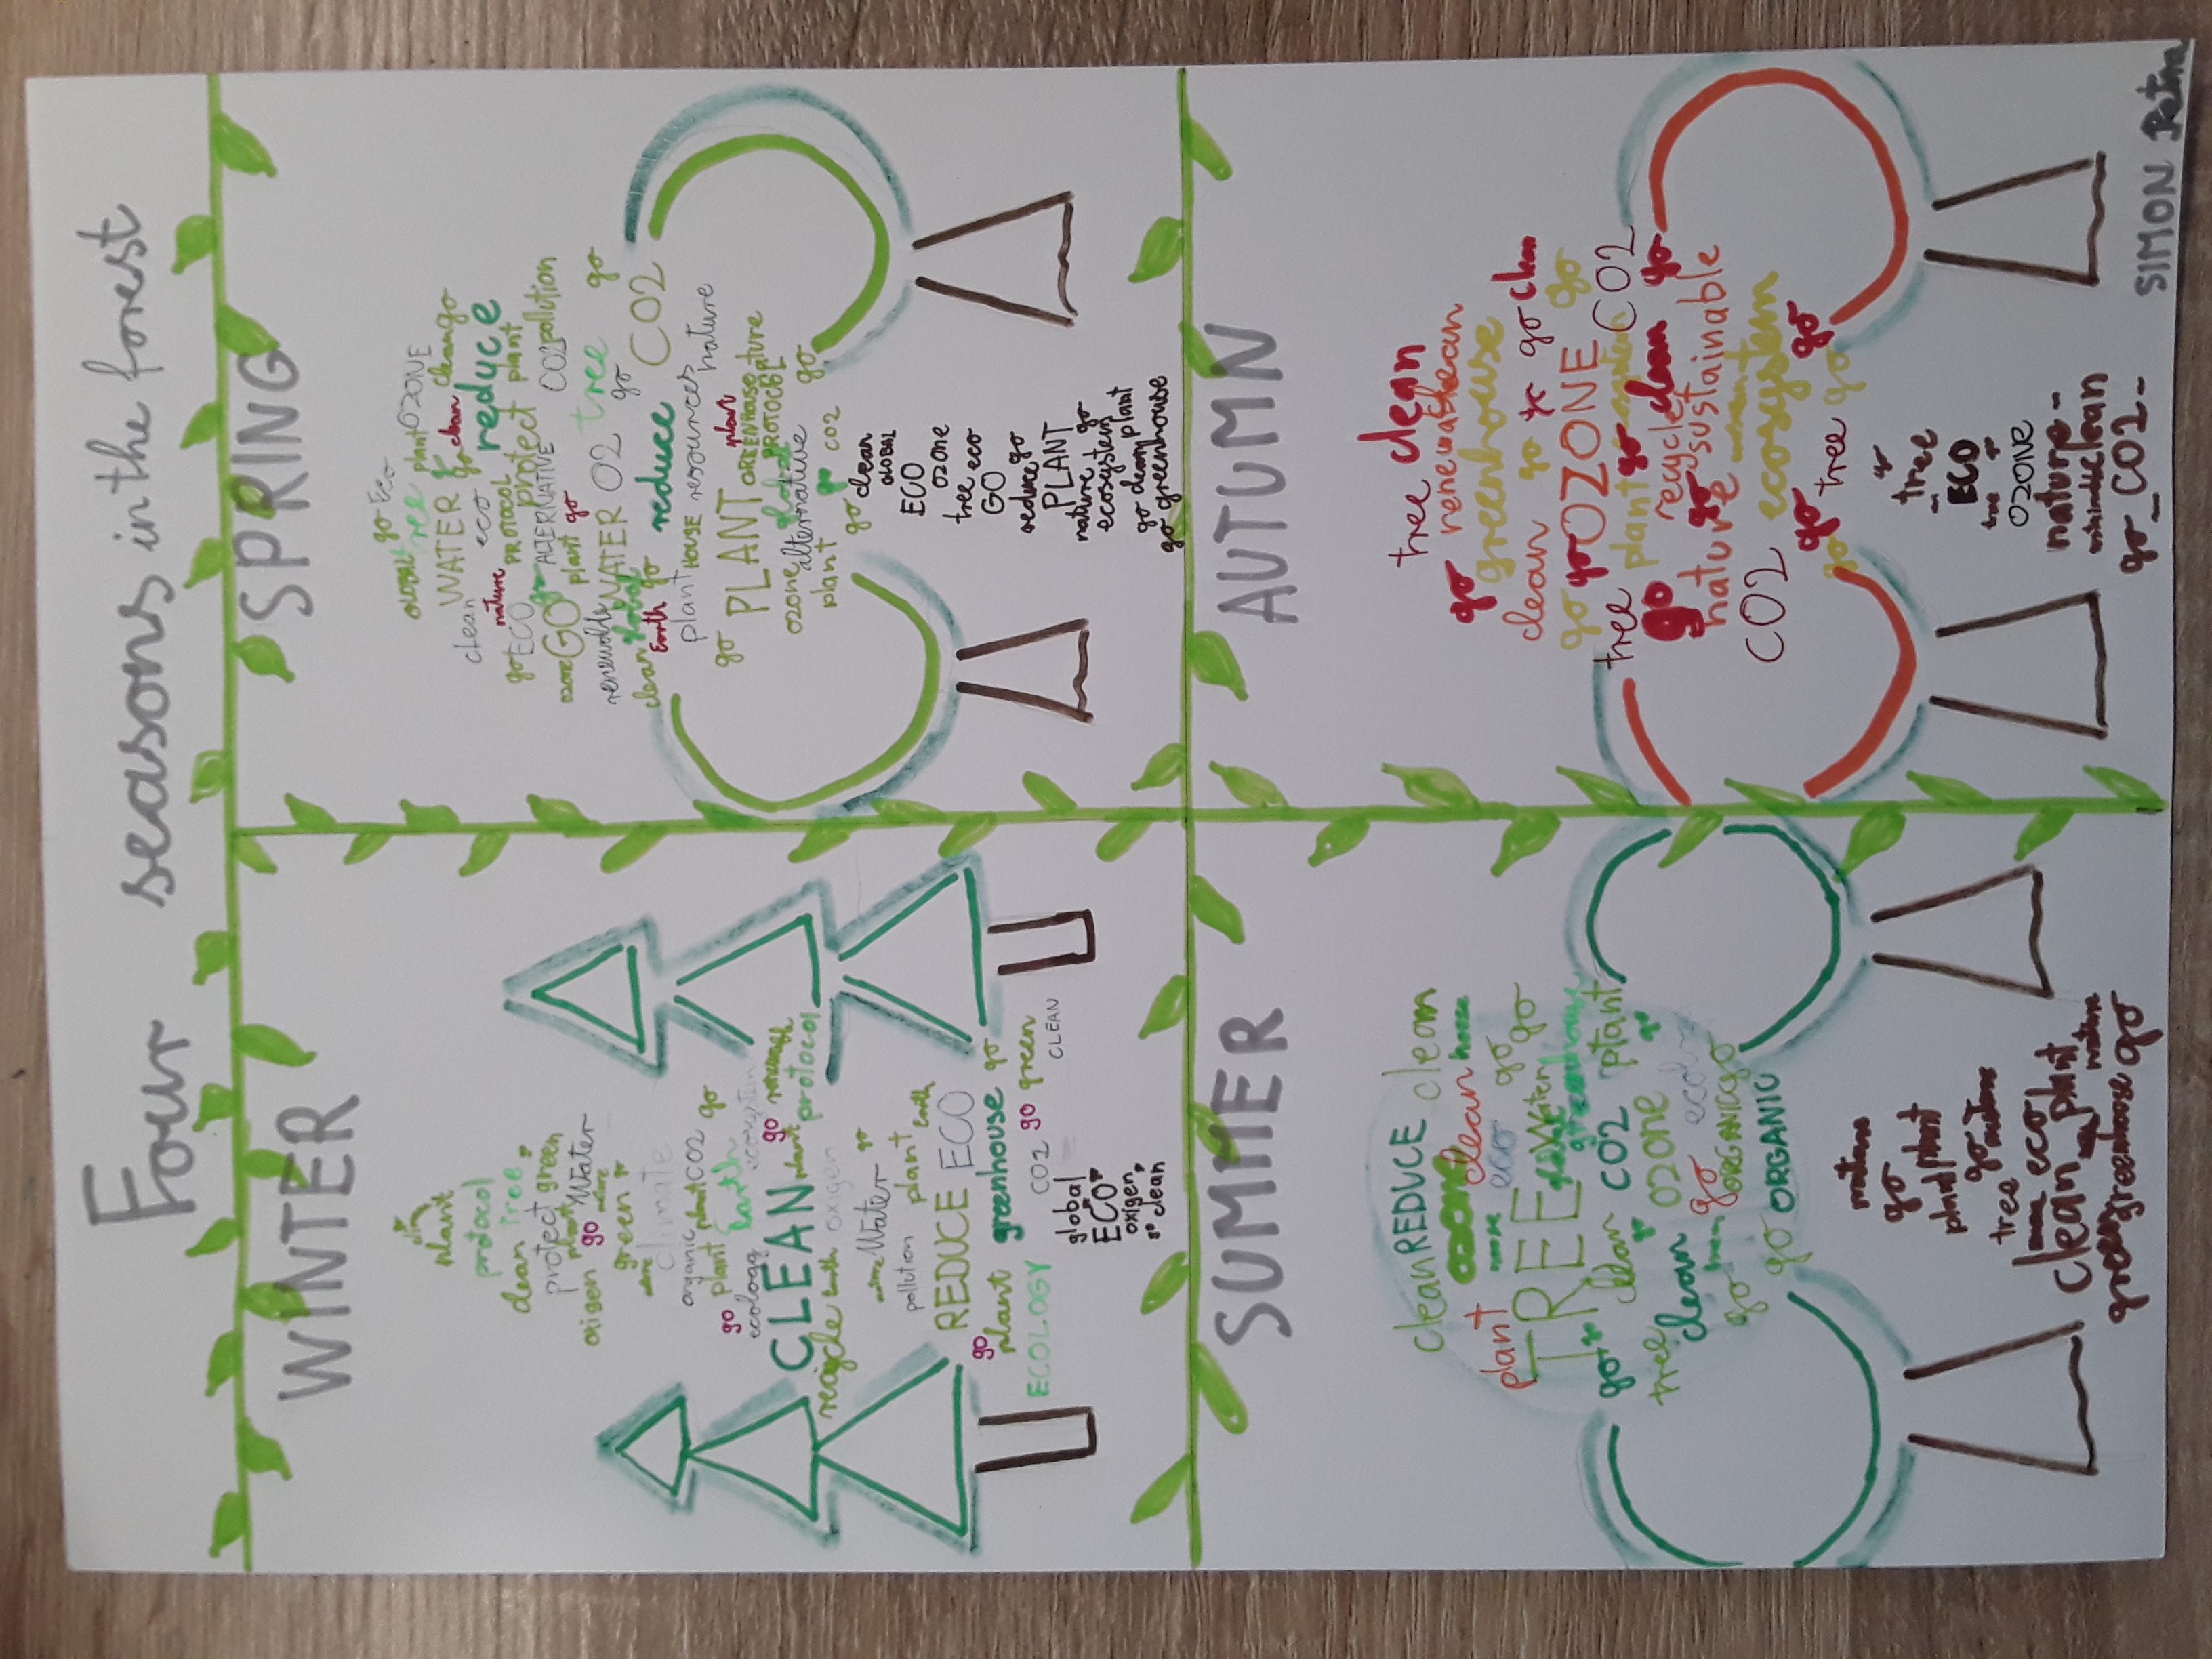 Four seasons in the forest
WINTER
plant
protocol
clean tree
protect green
oxigen plant Water
go nature
green
climate
organic plant CO2 go
go plant Earth
ecology ecosystem
CLEAN plant go renewable
recycle Earth oxigen protocol
nature Water go
pollution plant Earth
REDUCE ECO
go plant greenhouse go
ECOLOGY CO2 go green
CLEAN
global
ECO
oxigen
go clean
SPRING
go Eco
global tree plant OZONE
WATER go clean change
clean eco go reduce
nature PROTOCOL protect plant
go ECO go ALTERNATIVE CO2 pollution
ozone GO plant go
renewable WATER O2 tree go
clean global go go
Earth go reduce CO2
plant HOUSE resources nature
go PLANT plant
ozone global PROTOCOL
alternative
plant go go CO2 go
go clean
GLOBAL
ECO
ozone
tree eco
GO
reduce go
PLANT
nature go
ecosystem
go clean plant
go greenhouse
SUMMER
clean REDUCE clean
plant ozone clean house
eco go go
TREE
greenhouse
go go clean CO2 plant
tree go OZONE go
clean go ecology
go ORGANIC go
go ORGANIC
nature
go
plant plant
go nature
tree
eco
clean plant
nature
green greenhouse go
AUTUMN
tree clean
go renewable clean
greenhouse
clean go go clean
go go OZONE go
tree plant go CO2
go recycle clean go
nature go sustainable
CO2 ecosystem
go tree go go
go
go
tree
ECO
tree
OZONE
nature
clean
go CO2
SIMON Petra